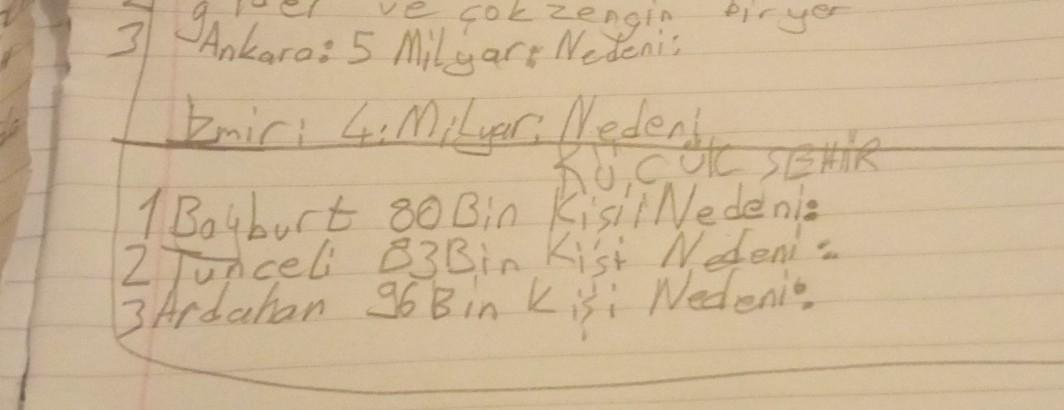 ve çok zengin bir yer
3 Ankara: 5 Milyar: Nedeni:
İzmir: 4: Milyar: Nedeni
KÜÇÜK SEHİR
1 Bayburt 80 Bin Kişi Nedeni:
2 Tunceli 83 Bin Kişi Nedeni:
3 Ardahan 96 Bin Kişi Nedeni: